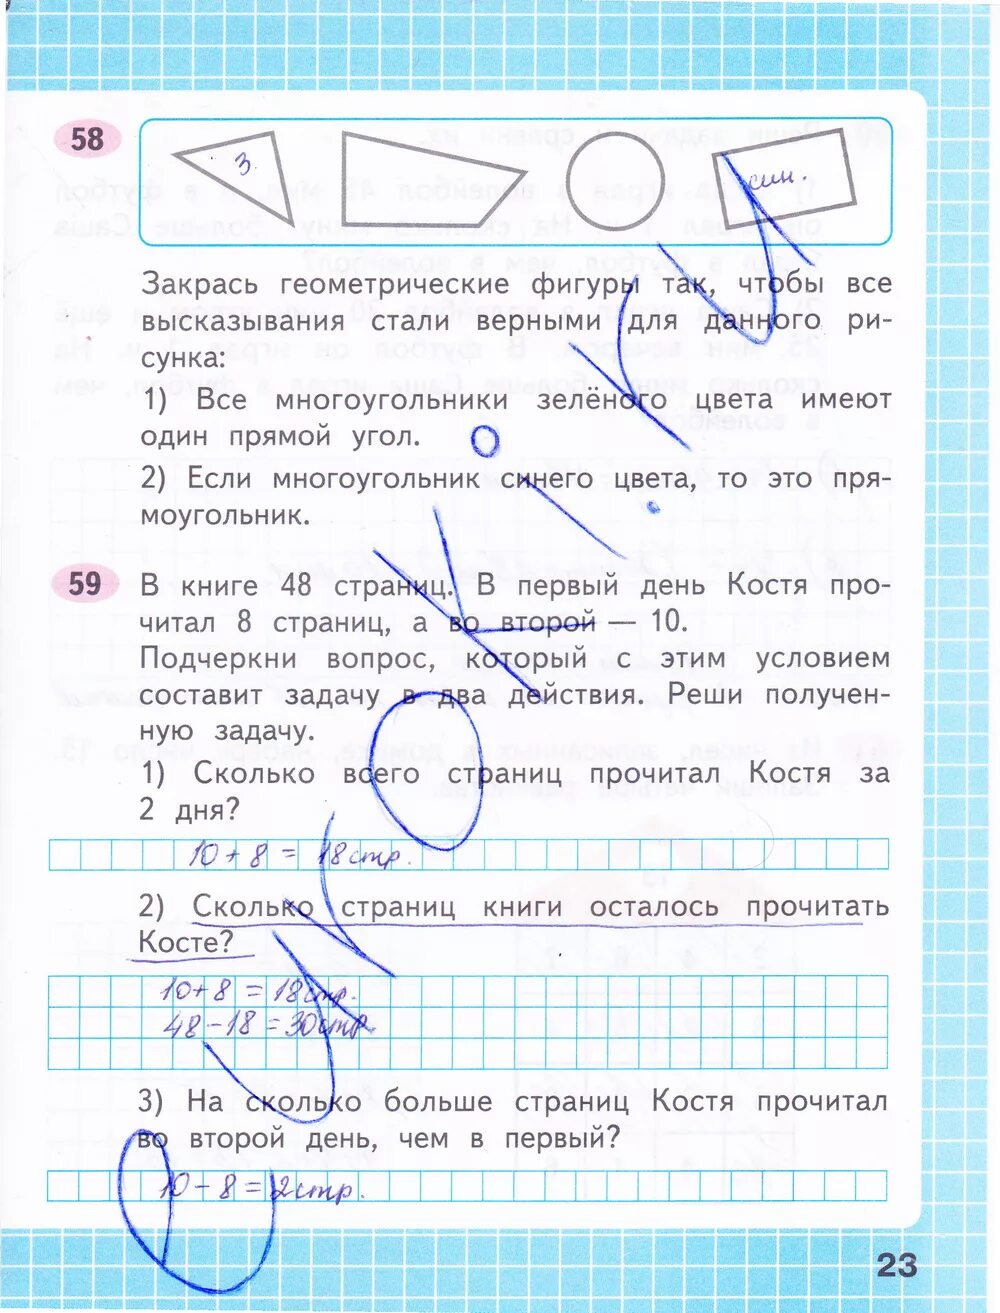 58
З.
син.
Закрась геометрические фигуры так, чтобы все
высказывания стали верными для данного ри-
сунка:
1) Все многоугольники зелёного цвета имеют
один прямой угол.
2) Если многоугольник синего цвета, то это пря-
моугольник.
59
В книге 48 страниц. В первый день Костя про-
читал 8 страниц, а во второй — 10.
Подчеркни вопрос, который с этим условием
составит задачу в два действия. Реши получен-
ную задачу.
1) Сколько всего страниц прочитал Костя за
2 дня?
10 + 8 = 18 стр.
2) Сколько страниц книги осталось прочитать
Косте?
10 + 8 = 18 стр.
48 - 18 = 30 стр.
3) На сколько больше страниц Костя прочитал
во второй день, чем в первый?
10 - 8 = 2 стр.
23